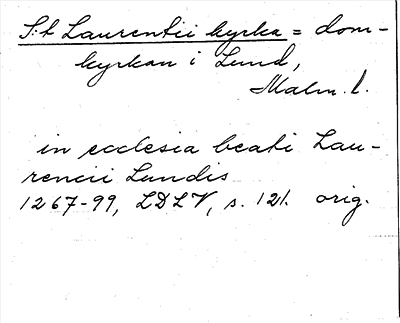 S:t Laurentii kyrka = dom-
kyrkan i Lund,
Malm. l.
in ecclesia beati Lau-
rencii Lundis
1267-99, LDLV, s. 121. orig.